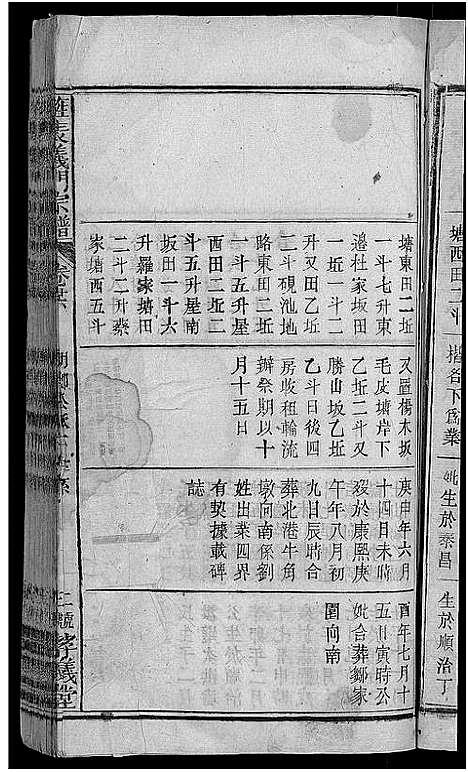 塘西田二斗
揩各下爲業
妣生於泰昌
生於順治丁
塘東田二坵
一斗七升東
邉杜家坂田
一坵一斗二
升又田乙坵
二斗硯池地
路東田二坵
一斗五升屋
西田二坵二
斗五升屋南
坂田一斗六
升羅家塘田
二斗二升蔡
家塘西五斗
又置楊木坂
毛皮塘岸下
乙坵二斗又
勝山坂乙坵
乙斗日後四
房收租輪流
辦祭期以十
月十五日
庚申年六月
十四日未時
殁於康熙庚
午年八月初
九日辰時合
葬北港牛角
墩向南係劉
姓出業四界
有契據載碑
誌
酉年七月十
五日寅時公
妣合葬鄒家
園向南
義門宗譜
孝義堂